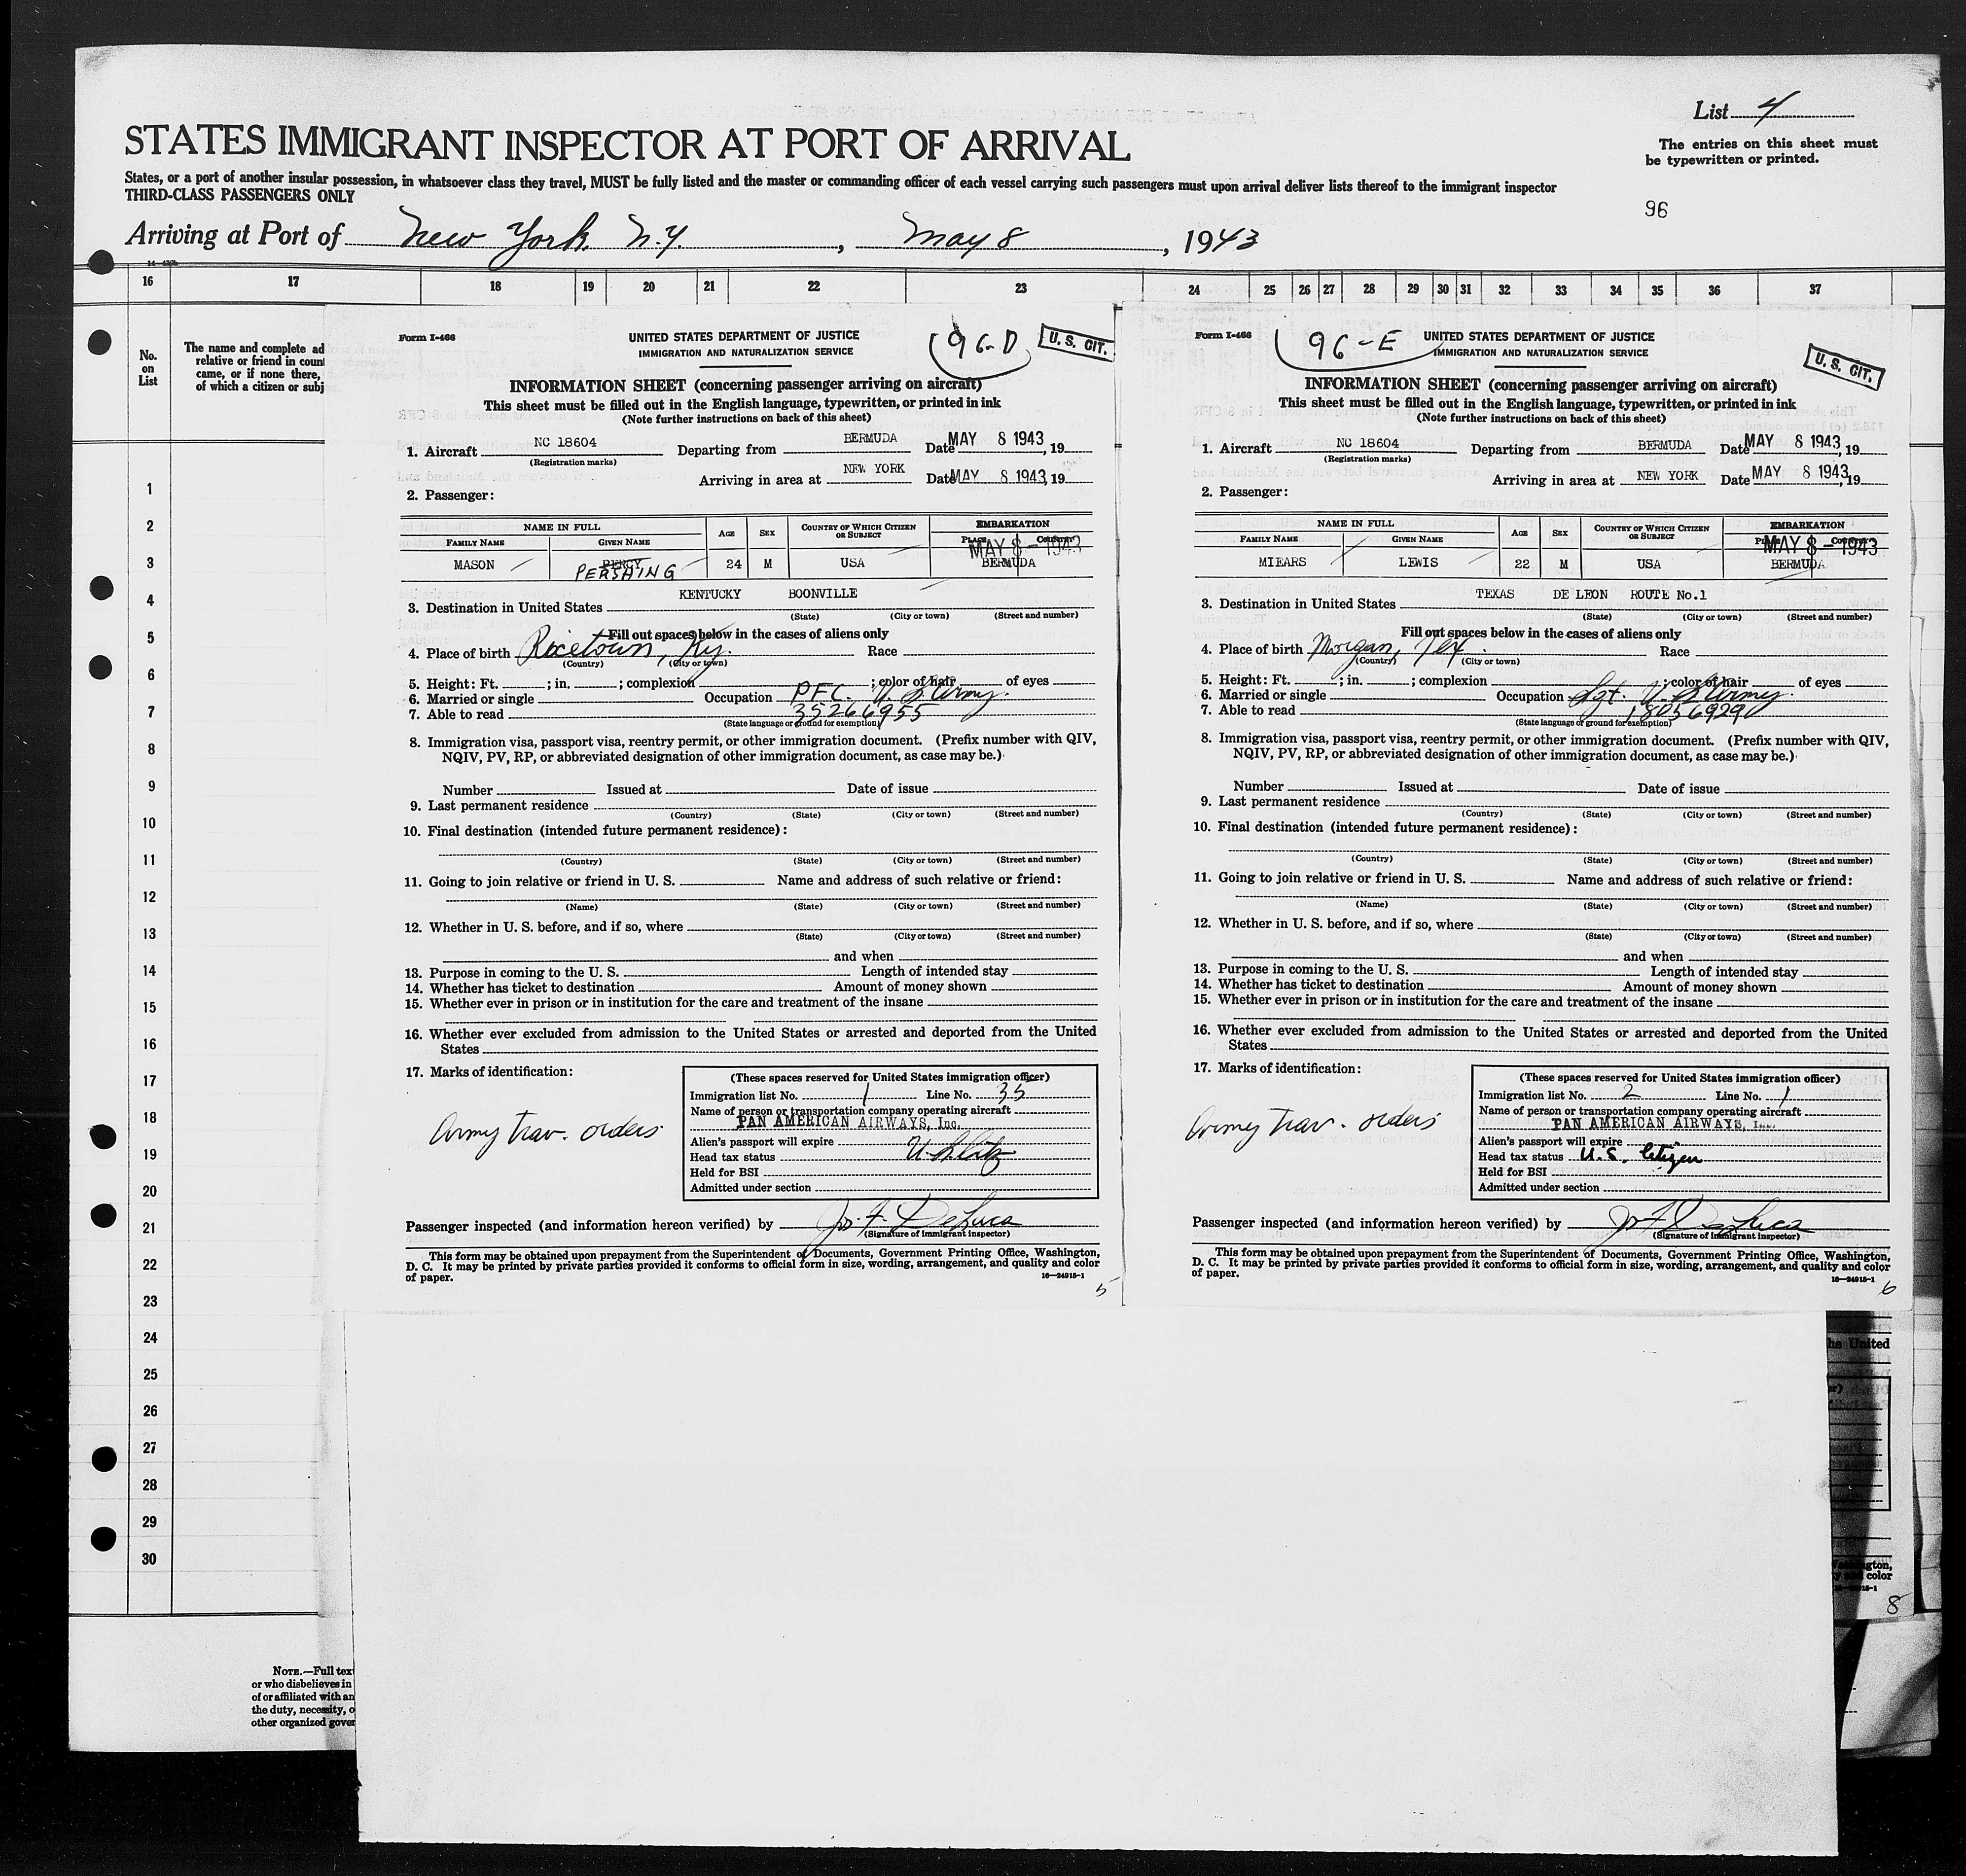 List 4
STATES IMMIGRANT INSPECTOR AT PORT OF ARRIVAL
The entries on this sheet must
be typewritten or printed.
States, or a port of another insular possession, in whatsoever class they travel, MUST be fully listed and the master or commanding officer of each vessel carrying such passengers must upon arrival deliver lists thereof to the immigrant inspector
THIRD-CLASS PASSENGERS ONLY
96
Arriving at Port of New York N.Y. , May 8 , 1943
16 17 18 19 20 21 22 23 24 25 26 27 28 29 30 31 32 33 34 35 36 37
No.
on
List
The name and complete ad
relative or friend in coun
came, or if none there,
of which a citizen or subj
1
2
3
4
5
6
7
8
9
10
11
12
13
14
15
16
17
18
19
20
21
22
23
24
25
26
27
28
29
30
NOTE.—Full tex
or who disbelieves in
of or affiliated with an
the duty, necessity, o
other organized gover
Form I-466 UNITED STATES DEPARTMENT OF JUSTICE 96-D U. S. CIT.
IMMIGRATION AND NATURALIZATION SERVICE
INFORMATION SHEET (concerning passenger arriving on aircraft)
This sheet must be filled out in the English language, typewritten, or printed in ink
(Note further instructions on back of this sheet)
1. Aircraft NC 18604 Departing from BERMUDA Date MAY 8 1943, 19
(Registration marks)
Arriving in area at NEW YORK Date MAY 8 1943, 19
2. Passenger:
NAME IN FULL AGE SEX COUNTRY OF WHICH CITIZEN OR SUBJECT EMBARKATION
FAMILY NAME GIVEN NAME PLACE COUNTRY
MAY 8 - 1943
MASON PERCY PERSHING 24 M USA BERMUDA
KENTUCKY BOONVILLE
3. Destination in United States
(State) (City or town) (Street and number)
Fill out spaces below in the cases of aliens only
4. Place of birth Ricetown, Ky. Race
(Country) (City or town)
5. Height: Ft. ; in. ; complexion ; color of hair of eyes
6. Married or single Occupation PFC. U.S. Army.
7. Able to read 35266955
(State language or ground for exemption)
8. Immigration visa, passport visa, reentry permit, or other immigration document. (Prefix number with QIV,
NQIV, PV, RP, or abbreviated designation of other immigration document, as case may be.)
Number Issued at Date of issue
9. Last permanent residence
(Country) (State) (City or town) (Street and number)
10. Final destination (intended future permanent residence):
(Country) (State) (City or town) (Street and number)
11. Going to join relative or friend in U. S. Name and address of such relative or friend:
(Name) (State) (City or town) (Street and number)
12. Whether in U. S. before, and if so, where
(State) (City or town) (Street and number)
and when
13. Purpose in coming to the U. S. Length of intended stay
14. Whether has ticket to destination Amount of money shown
15. Whether ever in prison or in institution for the care and treatment of the insane
16. Whether ever excluded from admission to the United States or arrested and deported from the United
States
17. Marks of identification:
Army trav. orders
(These spaces reserved for United States immigration officer)
Immigration list No. 1 Line No. 35
Name of person or transportation company operating aircraft
PAN AMERICAN AIRWAYS, Inc.
Alien's passport will expire
Head tax status
Held for BSI
Admitted under section
Passenger inspected (and information hereon verified) by Jos. F. DeLuca
(Signature of immigrant inspector)
This form may be obtained upon prepayment from the Superintendent of Documents, Government Printing Office, Washington,
D. C. It may be printed by private parties provided it conforms to official form in size, wording, arrangement, and quality and color
of paper. 16—24915-1
5
Form I-466 96-E UNITED STATES DEPARTMENT OF JUSTICE
IMMIGRATION AND NATURALIZATION SERVICE U. S. CIT.
INFORMATION SHEET (concerning passenger arriving on aircraft)
This sheet must be filled out in the English language, typewritten, or printed in ink
(Note further instructions on back of this sheet)
1. Aircraft NC 18604 Departing from BERMUDA Date MAY 8 1943, 19
(Registration marks)
Arriving in area at NEW YORK Date MAY 8 1943, 19
2. Passenger:
NAME IN FULL AGE SEX COUNTRY OF WHICH CITIZEN OR SUBJECT EMBARKATION
FAMILY NAME GIVEN NAME PLACE COUNTRY
MAY 8 - 1943
MIEARS LEWIS 22 M USA BERMUDA
TEXAS DE LEON ROUTE No.1
3. Destination in United States
(State) (City or town) (Street and number)
Fill out spaces below in the cases of aliens only
4. Place of birth Morgan, Tex. Race
(Country) (City or town)
5. Height: Ft. ; in. ; complexion ; color of hair of eyes
6. Married or single Occupation Sgt. U.S. Army.
7. Able to read 18056929
(State language or ground for exemption)
8. Immigration visa, passport visa, reentry permit, or other immigration document. (Prefix number with QIV,
NQIV, PV, RP, or abbreviated designation of other immigration document, as case may be.)
Number Issued at Date of issue
9. Last permanent residence
(Country) (State) (City or town) (Street and number)
10. Final destination (intended future permanent residence):
(Country) (State) (City or town) (Street and number)
11. Going to join relative or friend in U. S. Name and address of such relative or friend:
(Name) (State) (City or town) (Street and number)
12. Whether in U. S. before, and if so, where
(State) (City or town) (Street and number)
and when
13. Purpose in coming to the U. S. Length of intended stay
14. Whether has ticket to destination Amount of money shown
15. Whether ever in prison or in institution for the care and treatment of the insane
16. Whether ever excluded from admission to the United States or arrested and deported from the United
States
17. Marks of identification:
Army trav. orders
(These spaces reserved for United States immigration officer)
Immigration list No. 2 Line No. 1
Name of person or transportation company operating aircraft
PAN AMERICAN AIRWAYS, Inc.
Alien's passport will expire
Head tax status U.S. Citizen
Held for BSI
Admitted under section
Passenger inspected (and information hereon verified) by Jos. F. DeLuca
(Signature of immigrant inspector)
This form may be obtained upon prepayment from the Superintendent of Documents, Government Printing Office, Washington,
D. C. It may be printed by private parties provided it conforms to official form in size, wording, arrangement, and quality and color
of paper. 16—24915-1
6
he United
8